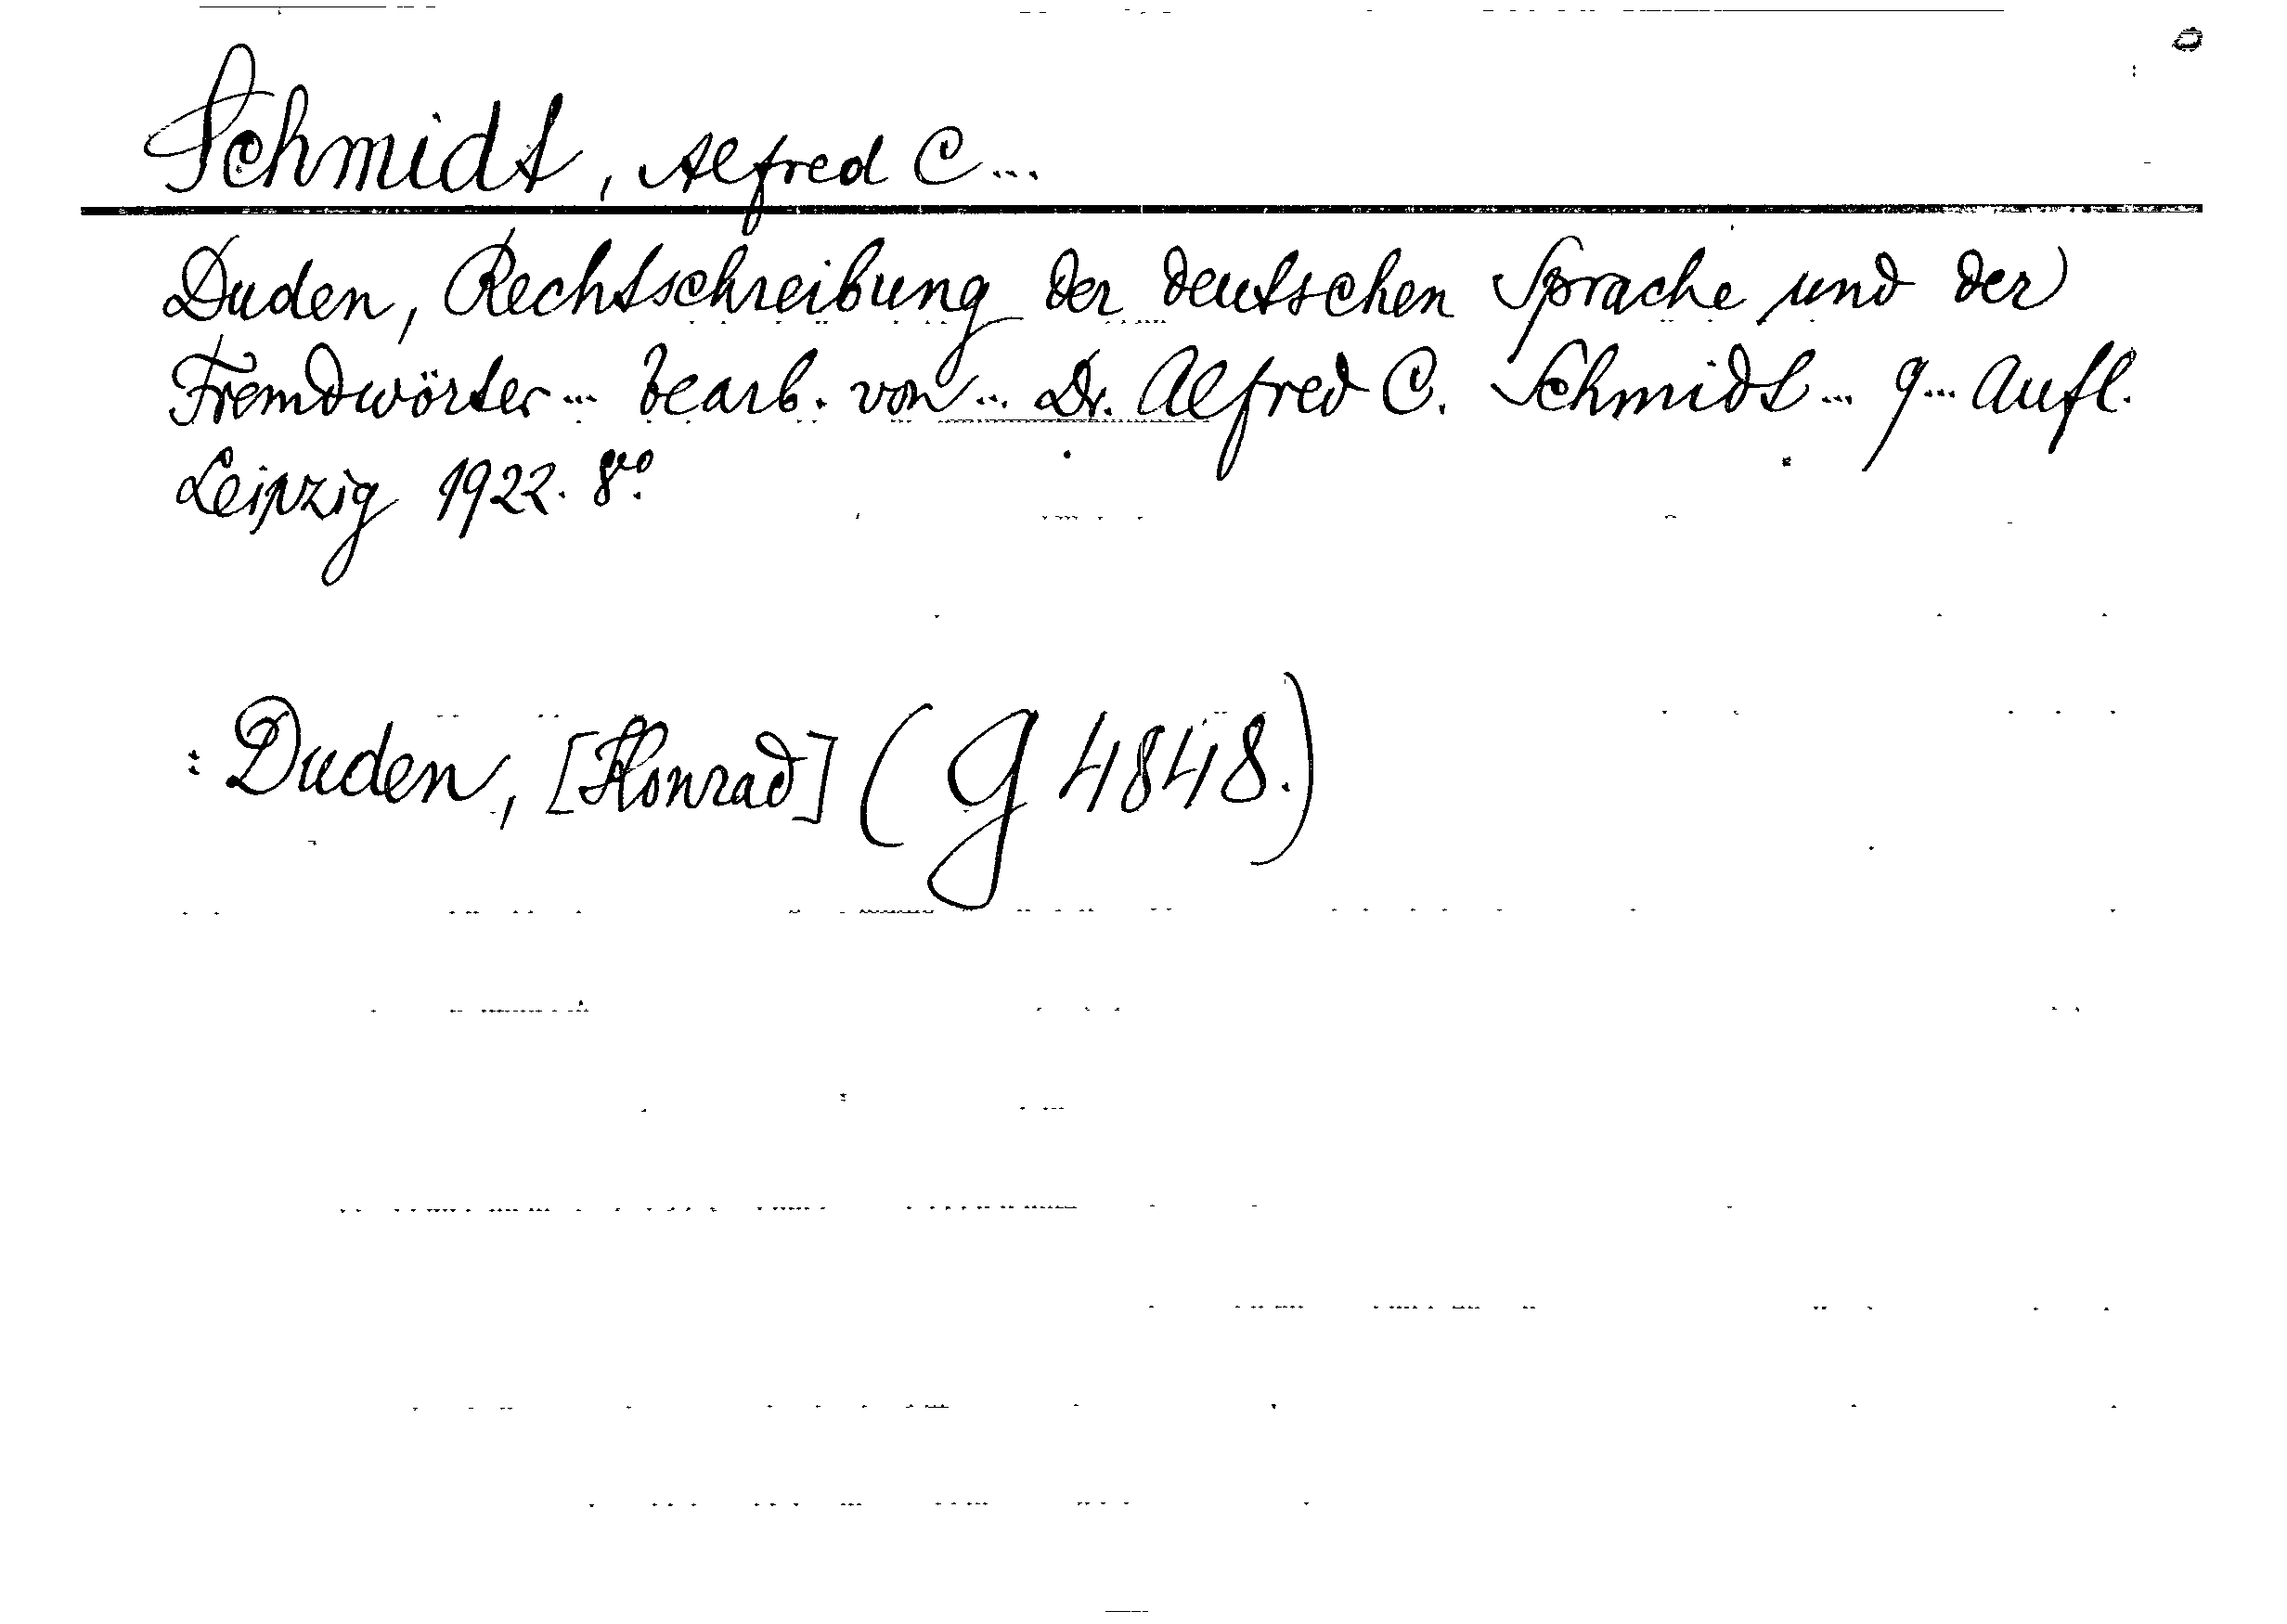 Schmidt, Alfred C...
Duden, Rechtschreibung der deutschen Sprache und der
Fremdwörter... bearb. von... Dr. Alfred C. Schmidt... 9... Aufl.
Leipzig 1922. 8vo.
: Duden, [Konrad] (G 4848.)